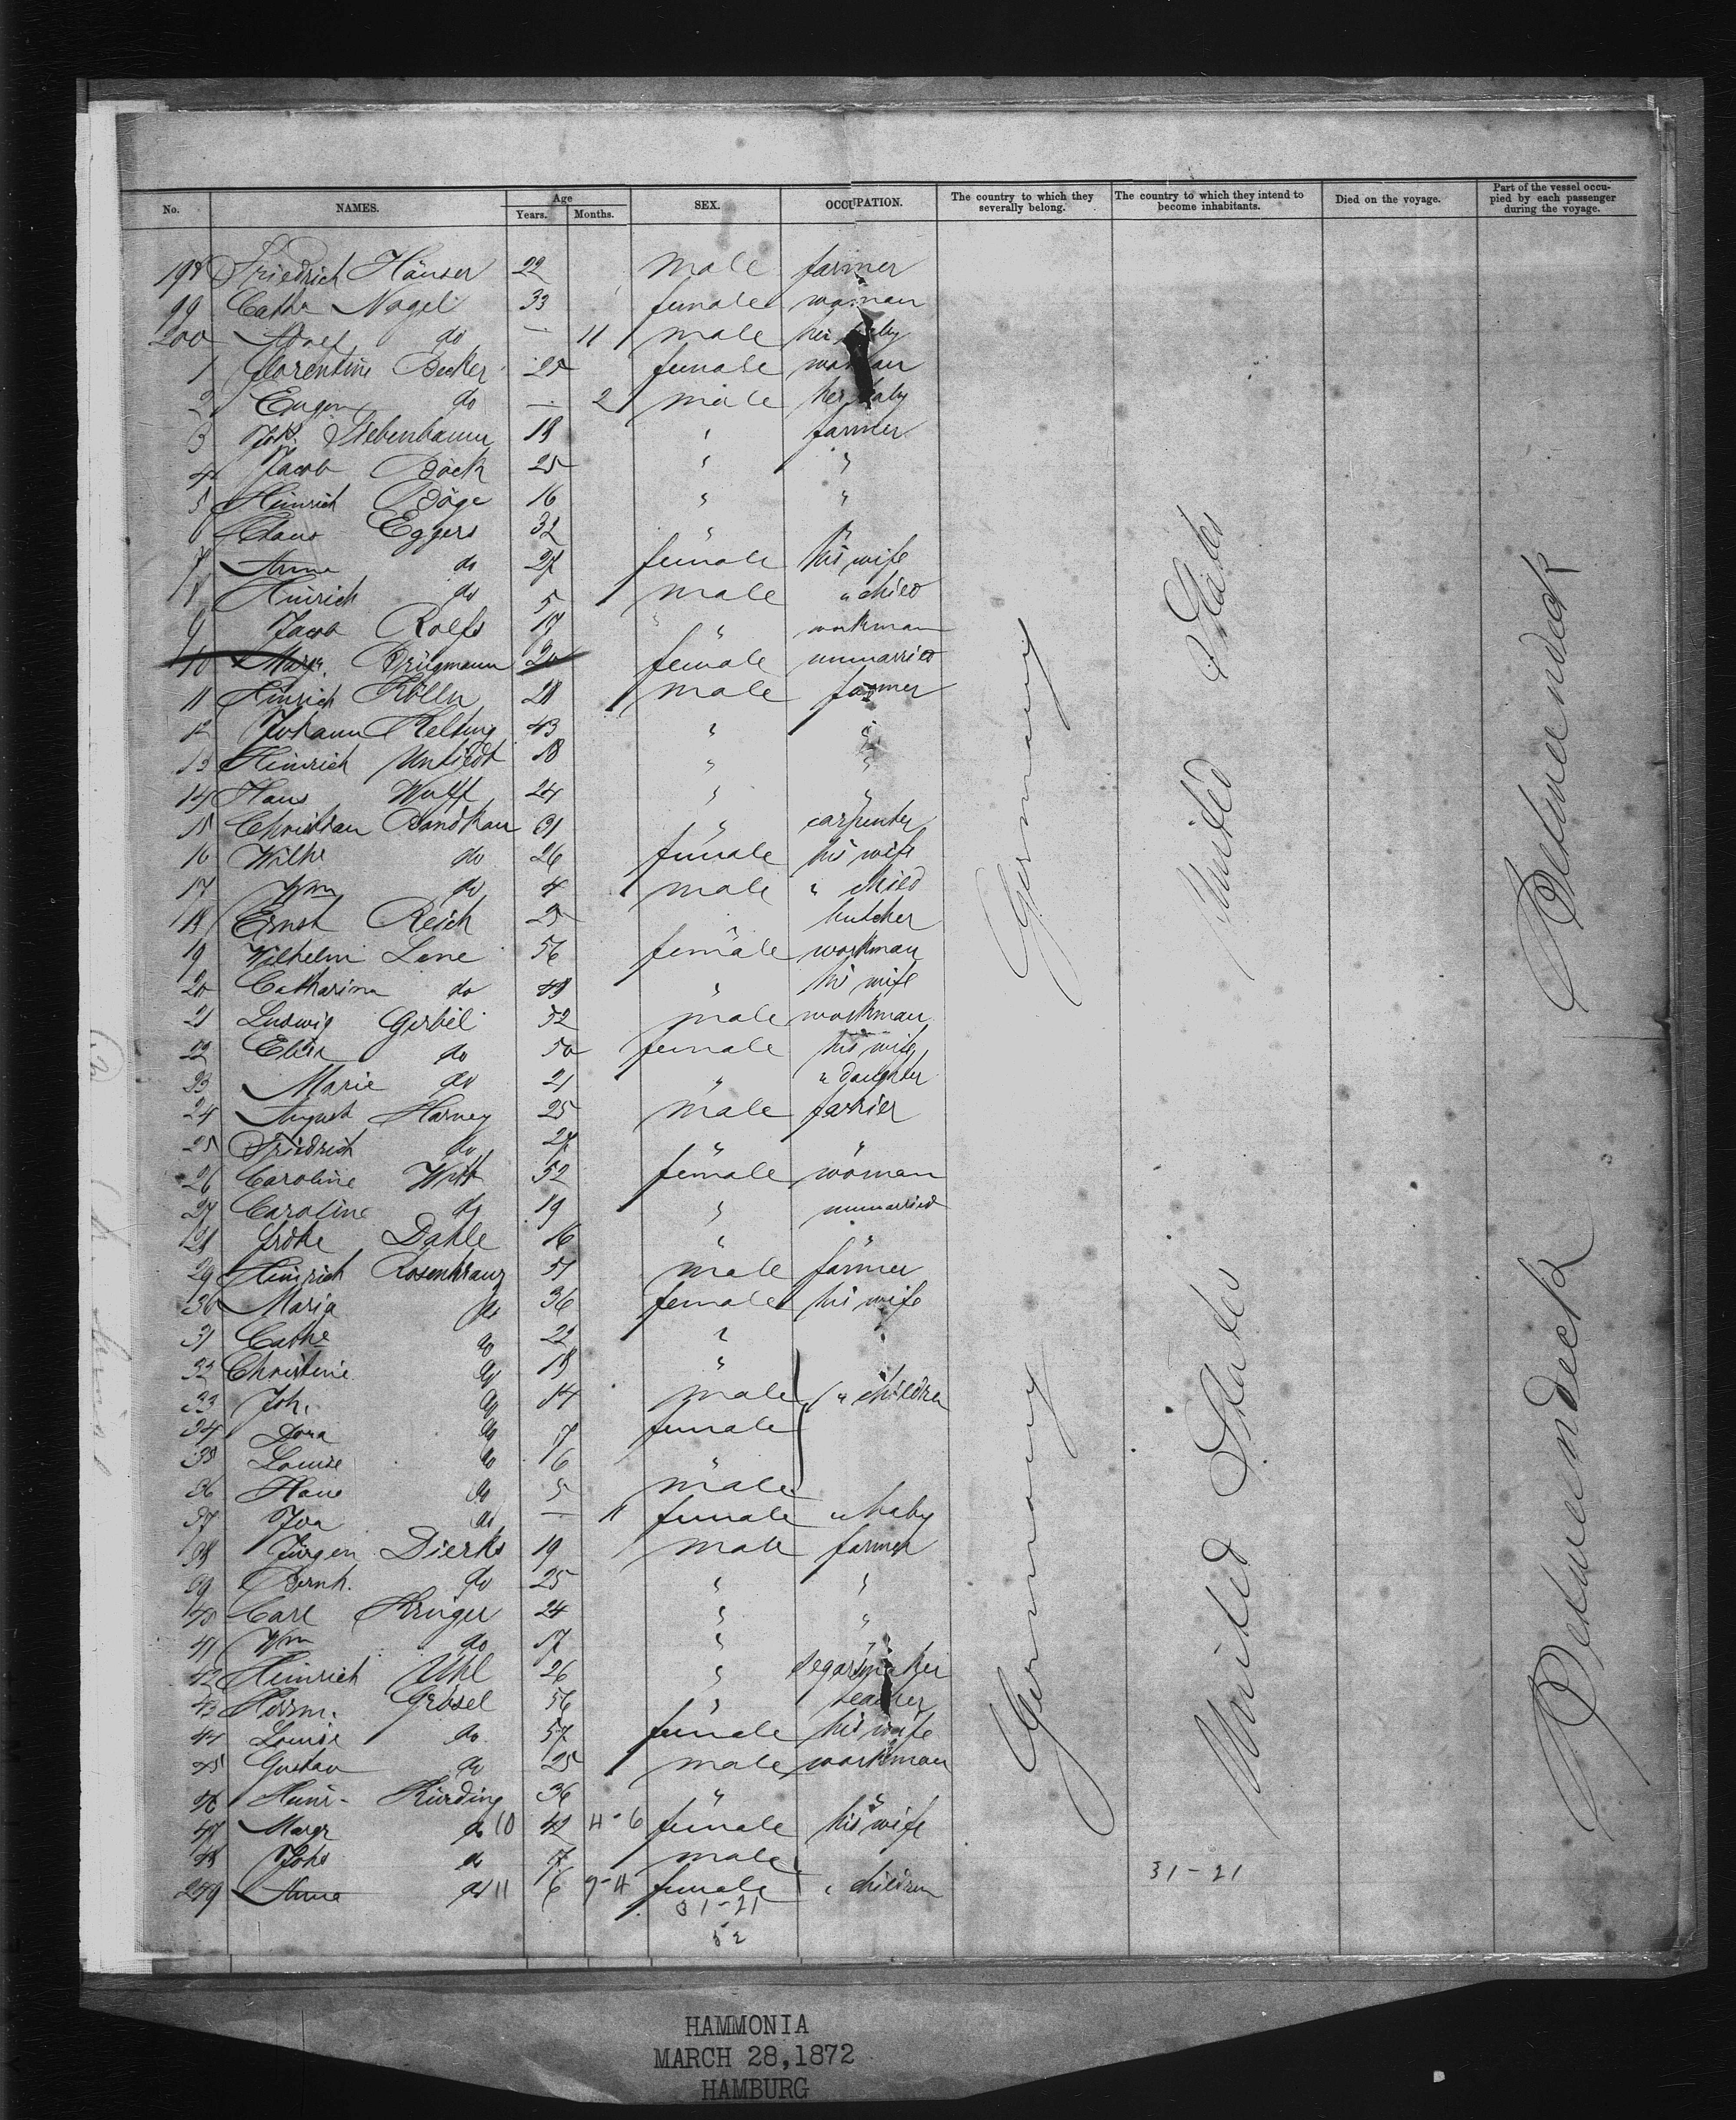 No. NAMES. Age Years. Months. SEX. OCCUPATION. The country to which they severally belong. The country to which they intend to become inhabitants. Died on the voyage. Part of the vessel occupied by each passenger during the voyage.
198 Friedrich Häuser 22 male farmer
99 Cathe Nagel 33 female woman
200 do — 11 male her baby
1 Florentine Becker 25 female woman
2 Eugen do — 2 male her baby
3 Joh. Siebenbaum 18 " farmer
4 Jacob Böck 25 " "
5 Hinrich Böge 16 " "
6 Claus Eggers 32 " "
7 Anna do 27 female his wife
8 Hinrich do 5 male " child
9 Jacob Rolfs 17 " workman
10 Marg. Brügmann 20 female unmarried
11 Hinrich Kölln 28 male farmer
12 Johann Relling 43 " "
13 Hinrich Untiedt 18 " "
14 Hans Wulff 24 " "
15 Christian Bandkau 31 " carpenter
16 Wilhe do 26 female his wife
17 Wm do 4 male " child
18 Ernst Reich 25 " butcher
19 Wilhelm Lene 56 female workman
20 Catharina do " his wife
21 Ludwig Gerbel 52 male workman
22 Elise do 50 female his wife
23 Marie do 21 " " daughter
24 August Harney 25 male farrier
25 Friedrich do 27 " "
26 Caroline Witt 52 female woman
27 Caroline do 19 " unmarried
28 Dahle 16 " "
29 Hinrich Rosenkranz 51 male farmer
30 Maria do 36 female his wife
31 Cathe do 22 " "
32 Christine do 18 "
33 Joh. do 14 male " children
34 Dora do 7 female
35 Louise do 6 "
36 Hans do 5 male
37 do — 11 female " baby
38 Jürgen Dierks 19 male farmer
39 Bernh. do 25 " "
40 Carl Krüger 24 " "
41 Wm do 17 " "
42 Heinrich Uhl 26 " segarsmaker
43 Herm. Grösel 56 " teacher
44 Louise do 57 female his wife
45 Gustav do 25 male workman
46 Heinr. Kürding 36 " "
47 Margr do 10 42 4-6 female his wife
48 Johs do 7 male
249 Anna do 11 6 9-4 female " children
Germany United States Betweendeck
Germany United States Betweendeck
31-21
31-21
52
HAMMONIA
MARCH 28,1872
HAMBURG